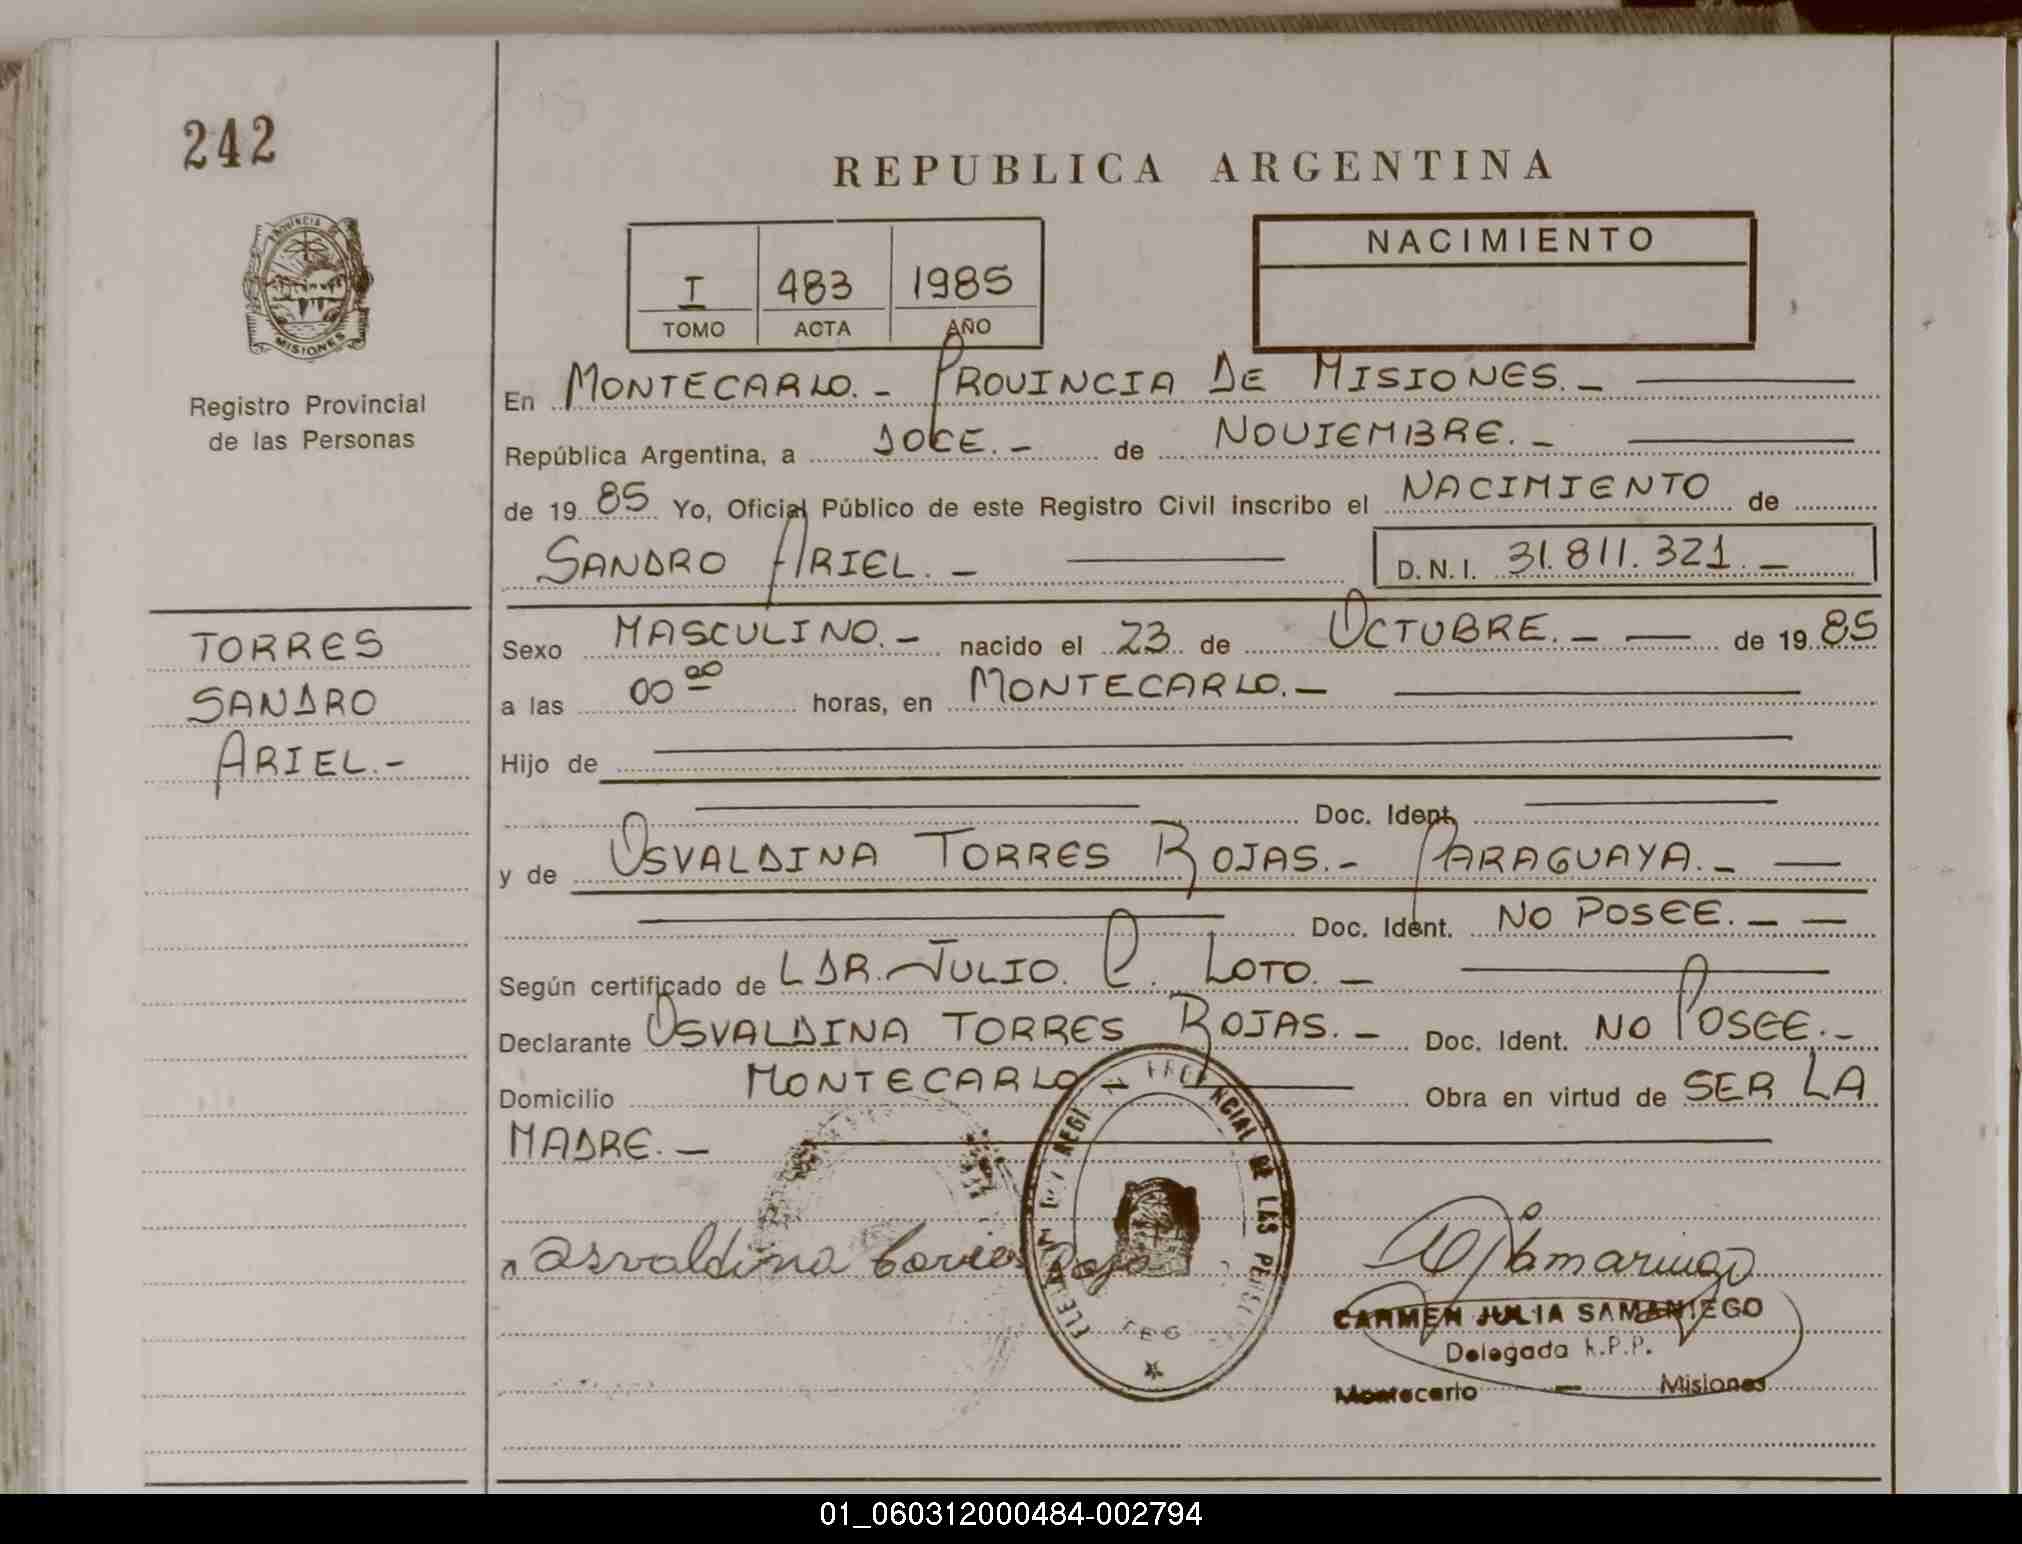 242
REPUBLICA ARGENTINA
PROVINCIA DE
MISIONES
Registro Provincial
de las Personas
I 483 1985
TOMO ACTA AÑO
NACIMIENTO
En MONTECARLO.- PROVINCIA DE MISIONES.-
República Argentina, a DOCE.- de NOVIEMBRE.-
de 19 85 Yo, Oficial Público de este Registro Civil inscribo el NACIMIENTO de
SANDRO ARIEL.- D.N.I. 31.811.321.-
TORRES
SANDRO
ARIEL.-
Sexo MASCULINO.- nacido el 23 de OCTUBRE.- de 19 85
a las 00 00 horas, en MONTECARLO.-
Hijo de
Doc. Ident.
y de OSVALDINA TORRES ROJAS.- PARAGUAYA.-
Doc. Ident. NO POSEE.-
Según certificado de LDR. JULIO. C. LOTO.-
Declarante OSVALDINA TORRES ROJAS.- Doc. Ident. NO POSEE.-
Domicilio MONTECARLO.- Obra en virtud de SER LA
MADRE.-
DE LAS
Osvaldina torres Roja
CARMEN JULIA SAMANIEGO
Delegada R.P.P.
Montecarlo - Misiones
01_060312000484-002794